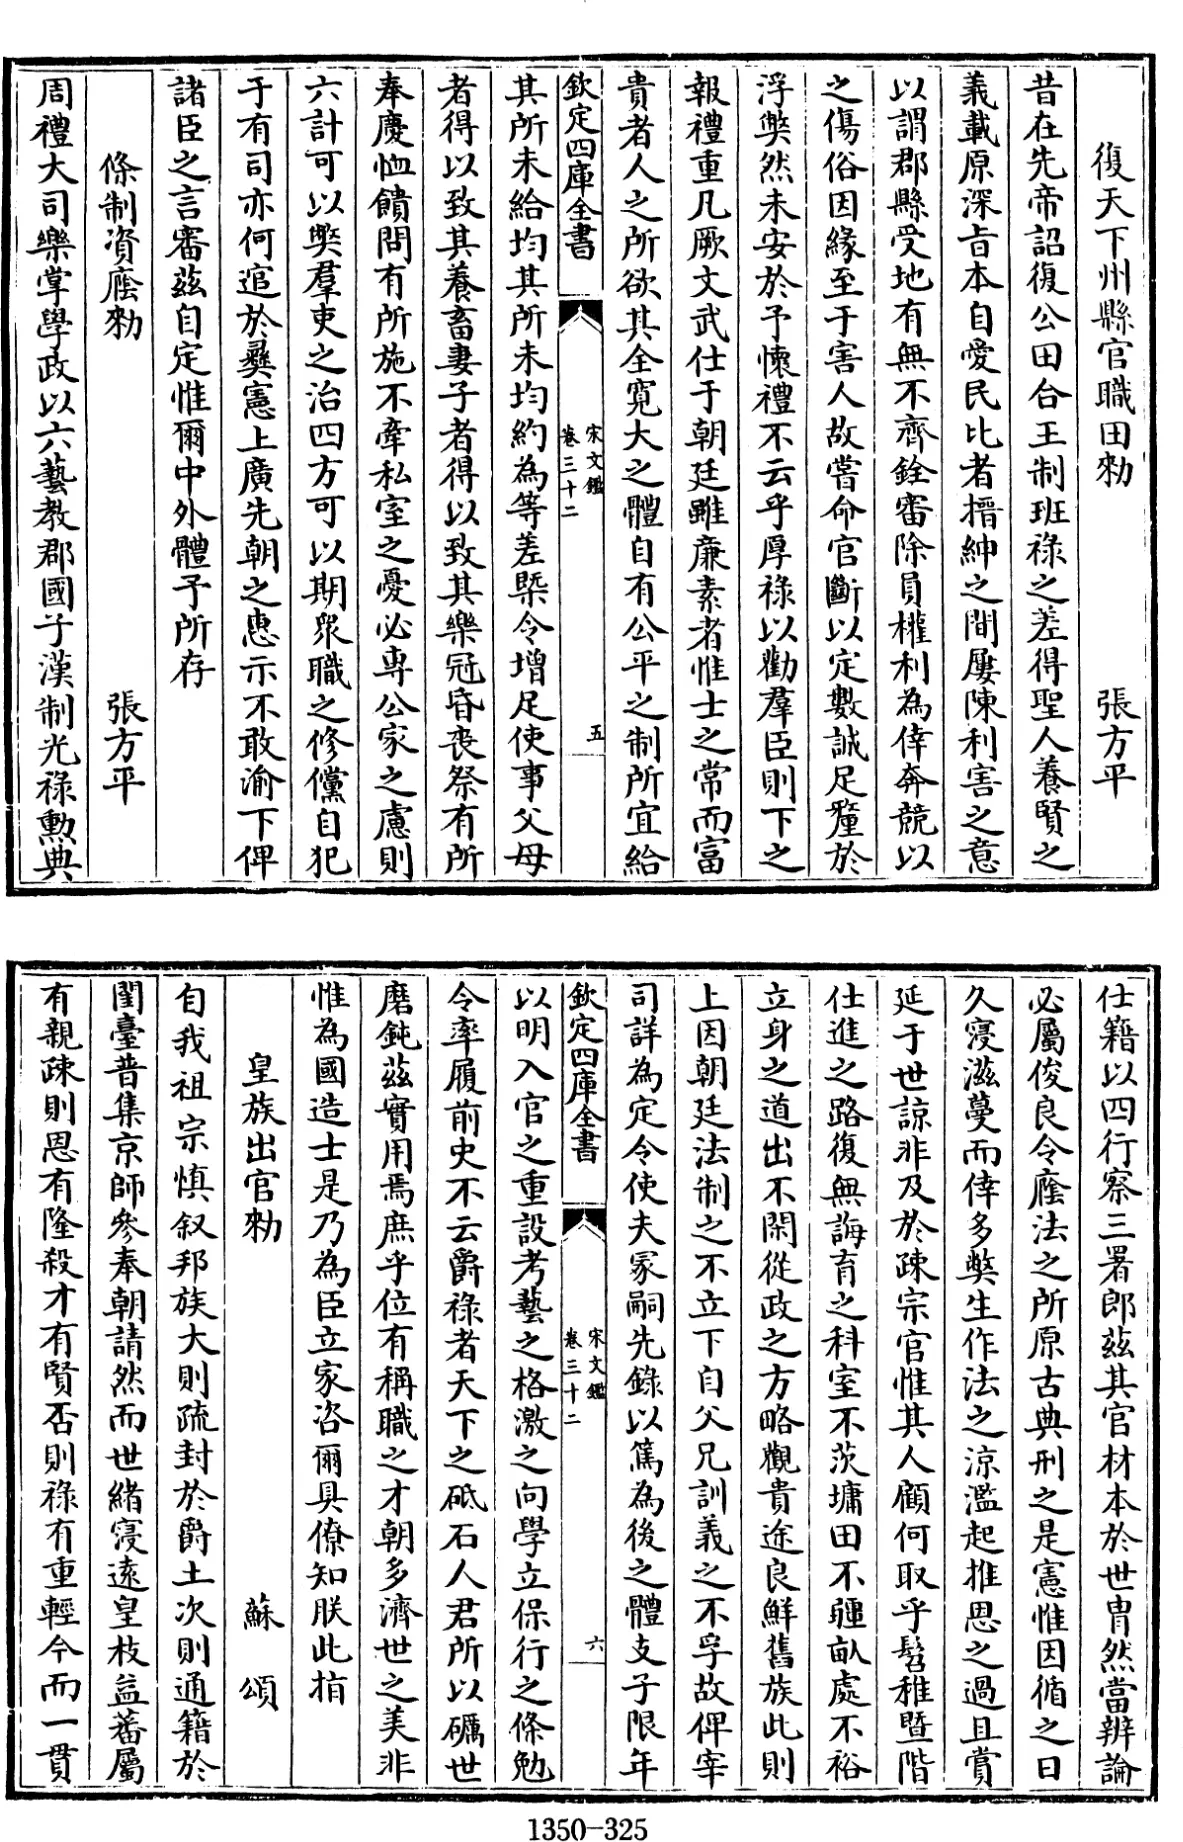 復天下州縣官職田勑　張方平
昔在先帝詔復公田合王制班祿之差得聖人養賢之
義載原深旨本自愛民比者搢紳之間屢陳利害之意
以謂郡縣受地有無不齊銓審除員權利為倖奔競以
之傷俗因緣至于害人故嘗命官斷以定數誠足釐於
浮弊然未安於予懷禮不云乎厚祿以勸羣臣則下之
報禮重凡厥文武仕于朝廷雖廉素者惟士之常而富
貴者人之所欲其全寬大之體自有公平之制所宜給
欽定四庫全書　宋文鑑　卷三十二　五
其所未給均其所未均約為等差槩令增足使事父母
者得以致其養畜妻子者得以致其樂冠昏喪祭有所
奉慶恤饋問有所施不牽私室之憂必專公家之慮則
六計可以弊羣吏之治四方可以期衆職之修儻自犯
于有司亦何逭於彞憲上廣先朝之惠示不敢渝下俾
諸臣之言審茲自定惟爾中外體予所存
條制資廕勑　張方平
周禮大司樂掌學政以六藝教郡國子漢制光祿勲典
仕籍以四行察三署郎茲其官材本於世胄然當辨論
必屬俊良今廕法之所原古典刑之是憲惟因循之日
久寖滋蔓而倖多弊生作法之涼濫起推恩之過且賞
延于世諒非及於疎宗官惟其人顧何取乎髫稚暨階
仕進之路復無誨育之科室不茨墉田不疆畝處不裕
立身之道出不閑從政之方略觀貴途良鮮舊族此則
上因朝廷法制之不立下自父兄訓義之不孚故俾宰
司詳為定令使夫冢嗣先錄以篤為後之體支子限年
欽定四庫全書　宋文鑑　卷三十二　六
以明入官之重設考藝之格激之向學立保行之條勉
令率履前史不云爵祿者天下之砥石人君所以礪世
磨鈍茲實用焉庶乎位有稱職之才朝多濟世之美非
惟為國造士是乃為臣立家咨爾具僚知朕此指
皇族出官勑　蘇頌
自我祖宗慎叙邦族大則疏封於爵土次則通籍於
閨臺昔集京師參奉朝請然而世緒寖遠皇枝益蕃屬
有親疎則恩有隆殺才有賢否則祿有重輕今而一貫
1350-325